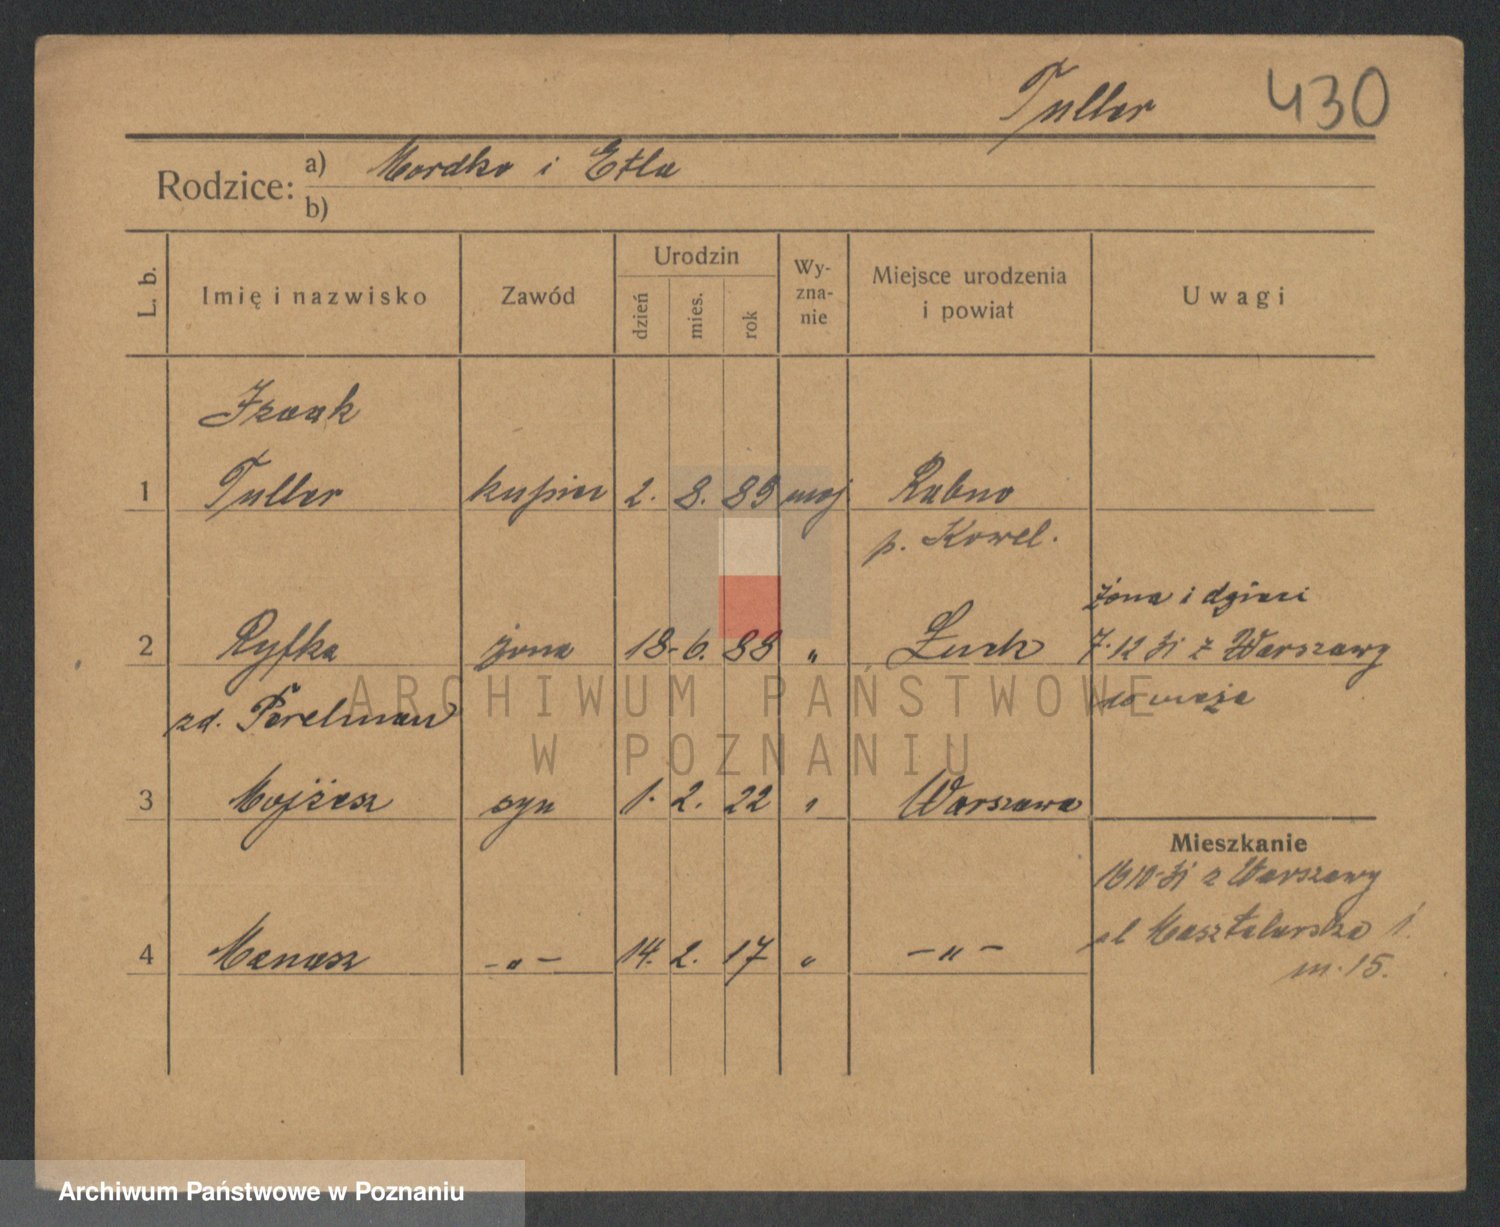 Tuller 430
Rodzice: a) Mordko i Etla
b)
L. b. Imię i nazwisko Zawód Urodzin dzień mies. rok Wy-zna-nie Miejsce urodzenia i powiat Uwagi
Izaak
1 Tuller kupiec 2. 8. 89 moj Rabno
p. Kowel.
żona i dzieci
2 Ryfka żona 18. 6. 88 „ Łuck 7.12 31 z Warszawy
zd. Perelman do męża
3 Mojżesz syn 1. 2. 22 „ Warszawa
Mieszkanie
31 z Warszawy
4 Menasz -„- 14. 2. 17 „ -„- ul Masztalarska 1.
m. 15.
ARCHIWUM PAŃSTWOWE
W POZNANIU
Archiwum Państwowe w Poznaniu